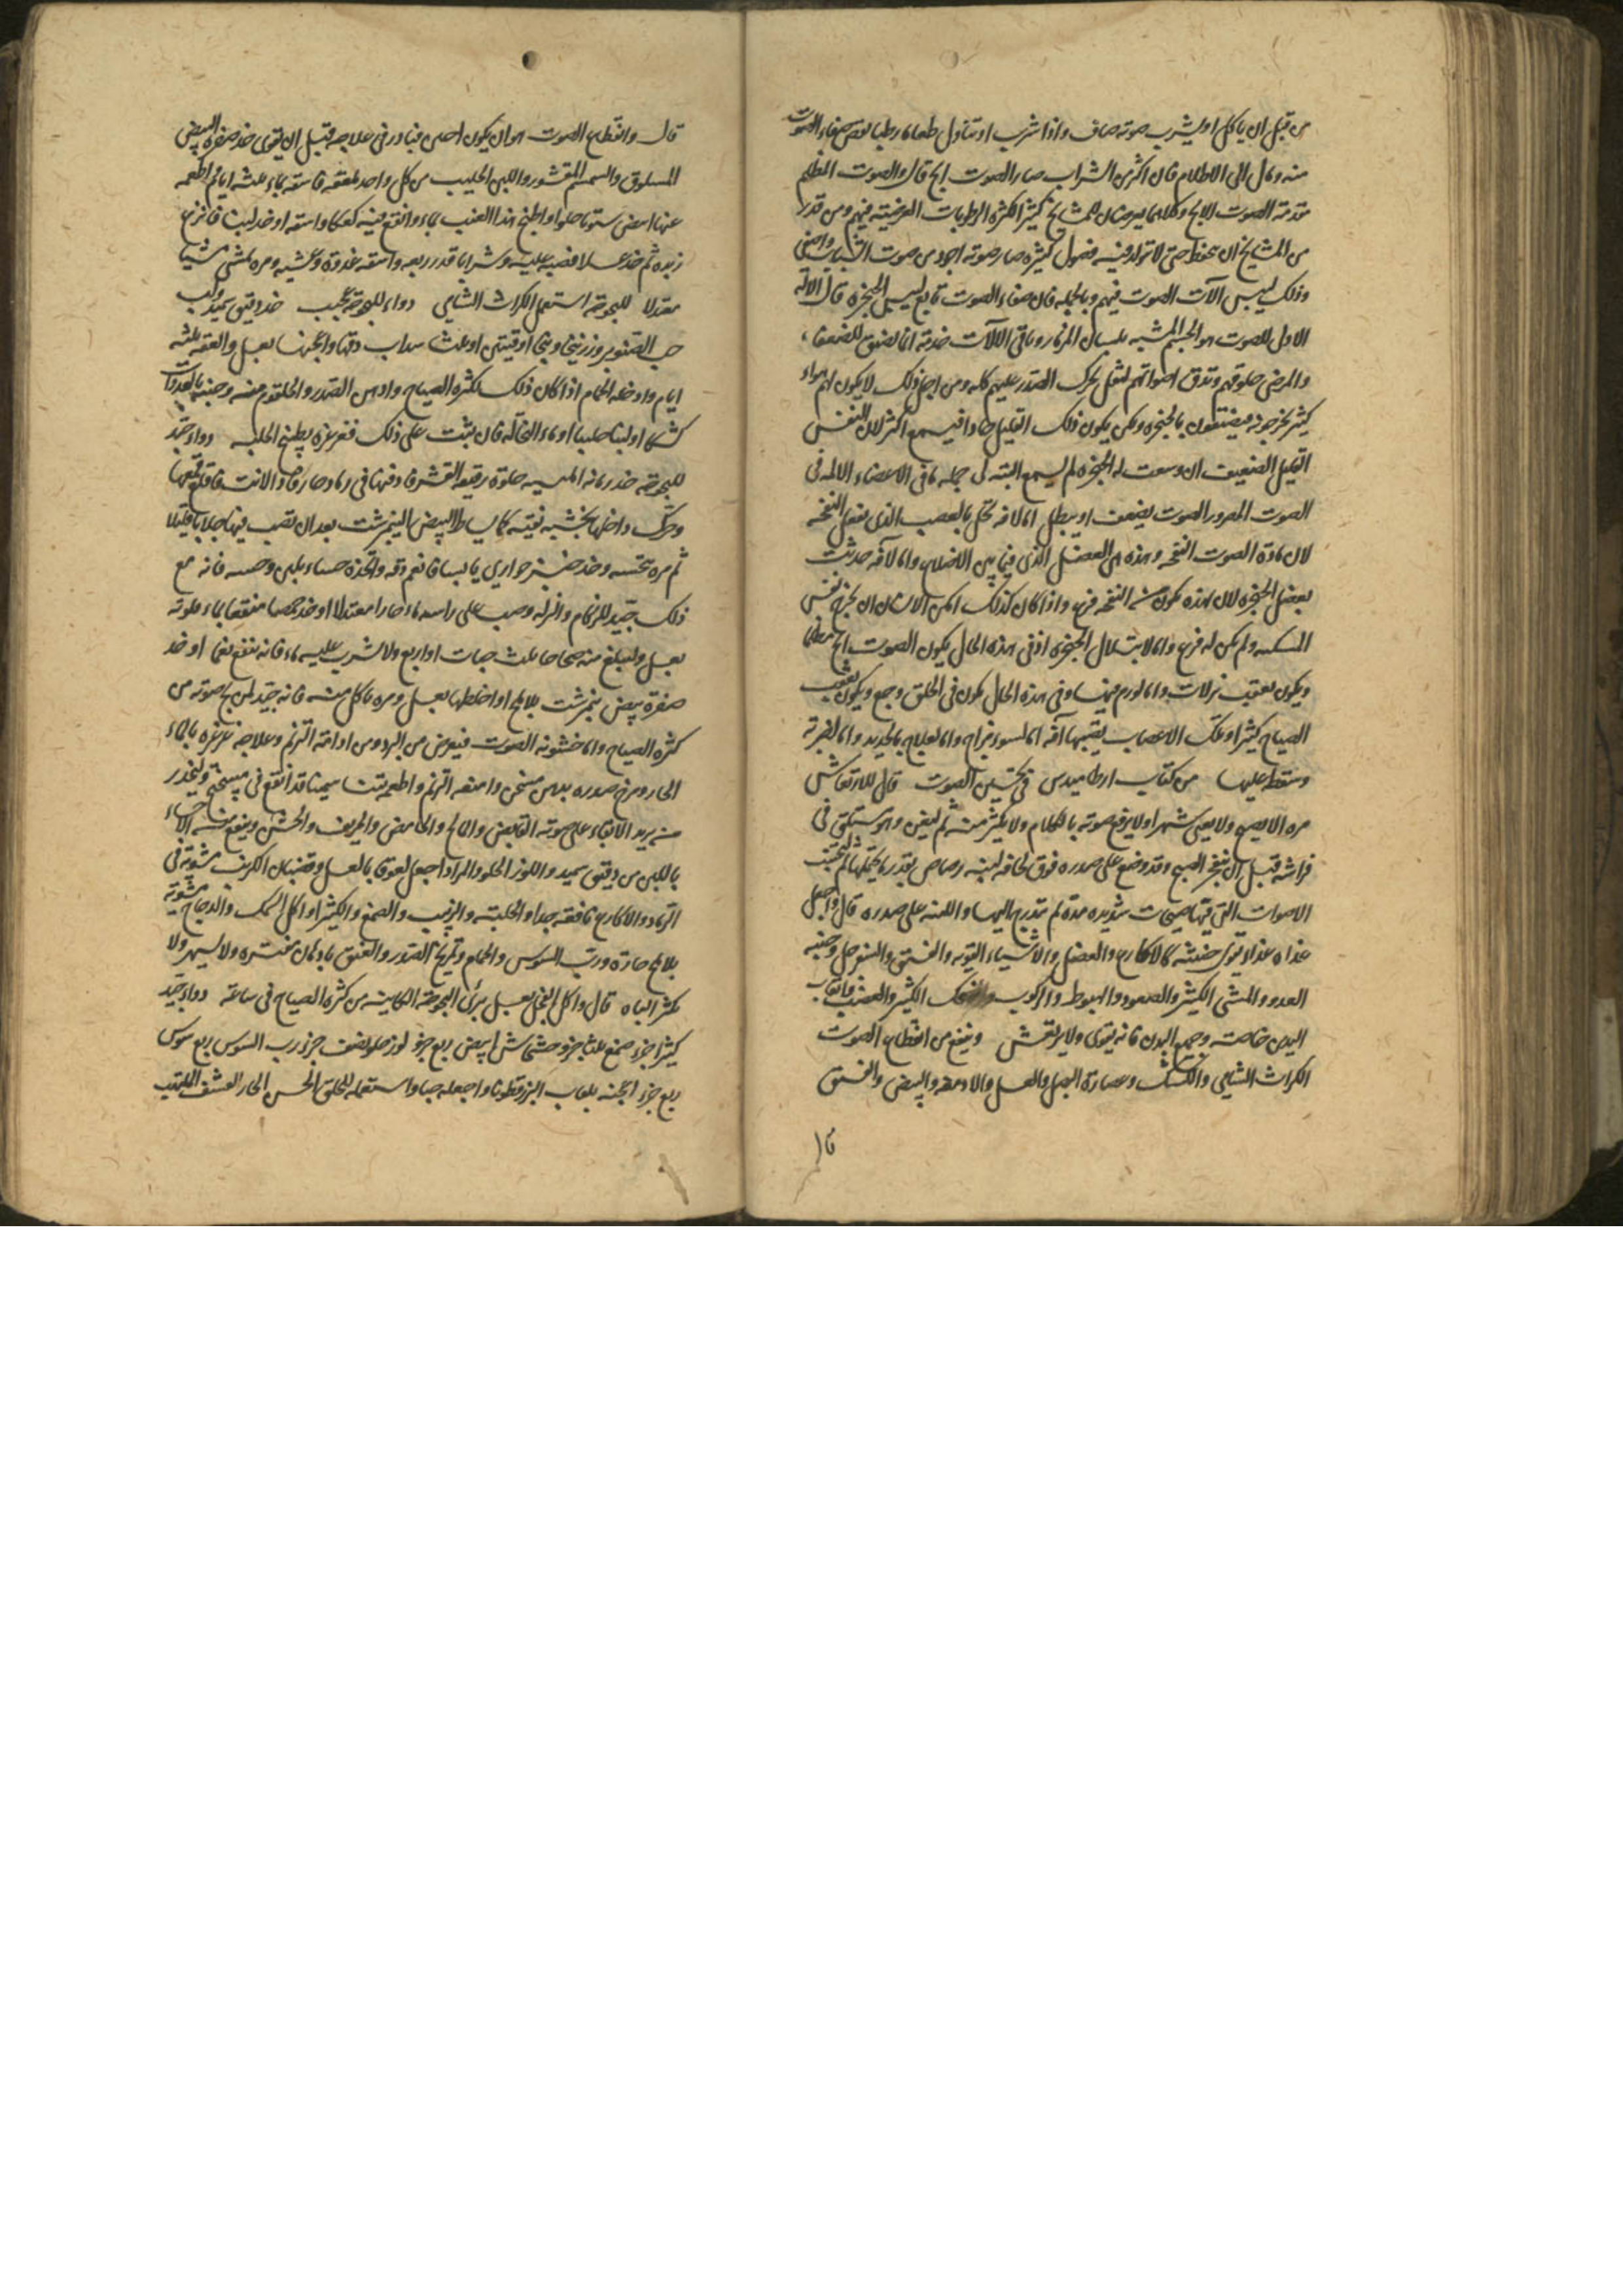 من قبل ان ياكل او يشرب صوته صاف واذا شرب او تناول طعاما رطبا نقص صفاء الصوت
منه ومال الى الاظلام فان اكثر من الشراب صار الصوت ابح قال والصوت المظلم
مقدمة الصوت الابح وكلاهما يعرضان للمشايخ كثيرا لكثرة الرطوبات العرضية فيهم ومن قدر
من المشايخ ان يحفظ حتى لا تولد فيه فضول كثيرة صار صوته اجود من صوت الشباب واصفى
وذلك ليبس آلات الصوت فيهم وبالجملة فان صفاء الصوت تابع ليبس الحنجرة قال الالة
الاول للصوت هو الجسم المشبه بلسان المزمار وباقى الالات خدمة انما تضيق للضعفاء
والمرضى حلوقهم وتدق اصواتهم لثقل تحرك الصدر عليهم كله ومن اجل ذلك لا يكون لهم هواء
كثير يخرجونه فيضيقون بالحنجرة ولكن يكون ذلك القليل حادا فيسمع اكثر لان النفس
القليل الضعيف ان وسعت له الحنجرة لم يسمع البتة فى الاعضاء الالمة
الصوت يضعف او يبطل اما لافة تحل بالعصب الذى يفعل النفخة
لان مادة الصوت النفخة وهذه هى العضل الذى فيما بين الاضلاع واما لافة حدثت
بعضل الحنجرة لان هذه تكون من النفخة قرع واذا كان كذلك امكن الانسان ان يخرج نفس
ولم يكن له قرع واما لابتلال الحنجرة اذ فى هذه الحال يكون الصوت ابح مظلما
ويكون بعقب نزلات واما لورم فيها وفى هذه الحال يكون فى الحلق وجع ويكون بعقب
الصياح كثيرا وتلك الاعصاب يصيبها آفة اما لسوء مزاج واما لعلاج بالحديد واما لضربة
وسقط عليها من كتاب ارطاميدس فى تحسين الصوت قال للارتعاش
مره الا يصيح ولا يعيى شهرا ولا يرفع صوته بالكلام ولا يكثر منه ثم ليغن وهو مستلق فى
فراشه قبل ان ينفجر الصبح وقد وضع على صدره فوق لحافه لبنة رصاص بقدر ما يحتملها ثم يجتنب
الاصوات التى فيها صيحات شديدة مدة ثم يتدرج اليها واللبنة على صدره قال واجعل
غذاه غذاء يقوى كالاكارع والعضل والاشياء القوية والفستق والسفرجل وجنبه
العدو والمشى الكثير والصعود والهبوط والركوب والضحك الكثير والغضب واتعاب
اليدين خاصة وجميع البدن فانه يقوى ولا يرتعش وينفع من انقطاع الصوت
الكراث الشامى والكشك وعصارة البصل والعسل والادمغة والبيض والفستق
قا
قال وانقطاع الصوت هو ان يكون فبادر فى علاجه قبل ان يقوى خذ صفرة البيض
المسلوق والسمسم المقشور واللبن الحليب من كل واحد ملعقة فاسقه بماء ثلثة ايام اطعمه
عنبا ابيض شتويا حلوا او اطبخ هذا العنب بماء وانقع فيه كعكا واسقه او خذ لبنا فانزع
زبده ثم خذ عسلا فصبه عليه وشرابا قدر ربعه واسقه غدوة وعشية ومره يمشى مشيا
معتدلا للبحوحة استعمل الكراث الشامى دواء للبحوحة عجيب خذ دقيق سميد ولب
حب الصنوبر وزرنيخ اوقيتين او ثلثا سذاب دقها واعجنها بعسل والعقه ثلثة
ايام وادخله الحمام اذا كان ذلك لكثرة الصياح وادهن الصدر والحلقوم منه وجنبه
كشكا او لبنا حليبا او ماء النخالة فان ثبت على ذلك فغرغره بطبيخ الحلبة دواء جيد
للبحوحة خذ رمانة حلوة رقيقة القشر فادفنها فى رماد حار فاذا لانت فاقلع قمعها
وحرك داخلها بخشبة نقية كما يساط البيض النيمرشت بعد ان تصب فيها جلابا قليلا
ثم مره يتحسه وخذ خبز حوارى يابسا فانعم دقه واتخذه حساء بلبن فانه مع
ذلك جيد للزكام والنزلة وصب على راسه ماء حارا معتدلا او خذ حمصا منقعا بماء فلوثه
بعسل وليبلع منه صحاحا ثلث حبات او اربع ولا يشرب عليه ماء فانه ينفع نعما او خذ
صفرة بيض نيمرشت بلا ملح او اخلطها بعسل ومره ياكل منه فانه جيد لمن بح صوته من
كثرة الصياح واما خشونة الصوت فيعرض من البرد ومن ادامة الترنم وعلاجه غرغرة بالماء
الحار ومرخ صدره بدهن مسخن وامنعه الترنم واطعمه تينا سمينا قد انقع فى ميبختج وليحذر
من يريد الابقاء على صوته القابض والمالح والحامض والحريف والخشن وينفع منه الاحساء
باللبن من دقيق سميد واللوز الحلو والمر اذا جعل لعوقا بالعسل وقضبان الكرنب مشوية فى
الرماد والاكارع نافعة جدا والحلبة والزبيب والصمغ والكثيرا واكل السمك والدجاج مشوية
بلا ملح حارة ورب السوس والحمام وتمريخ الصدر والعنق بادهان مفترة ولا يسهر ولا
يكثر الباه قال واكل الفجل بعسل يبرئ البحوحة الكاينة من كثرة الصياح فى ساعة دواء جيد
كثيرا جزء صمغ ثلثا جزء خشخاش ابيض ربع جزء لوز حلو نصف جزء رب السوس ربع سوس
ربع جزء اعجنه بلعاب البزرقطونا واجعله حبا واستعمله للحلق الخشن الحار القشف الملتهب